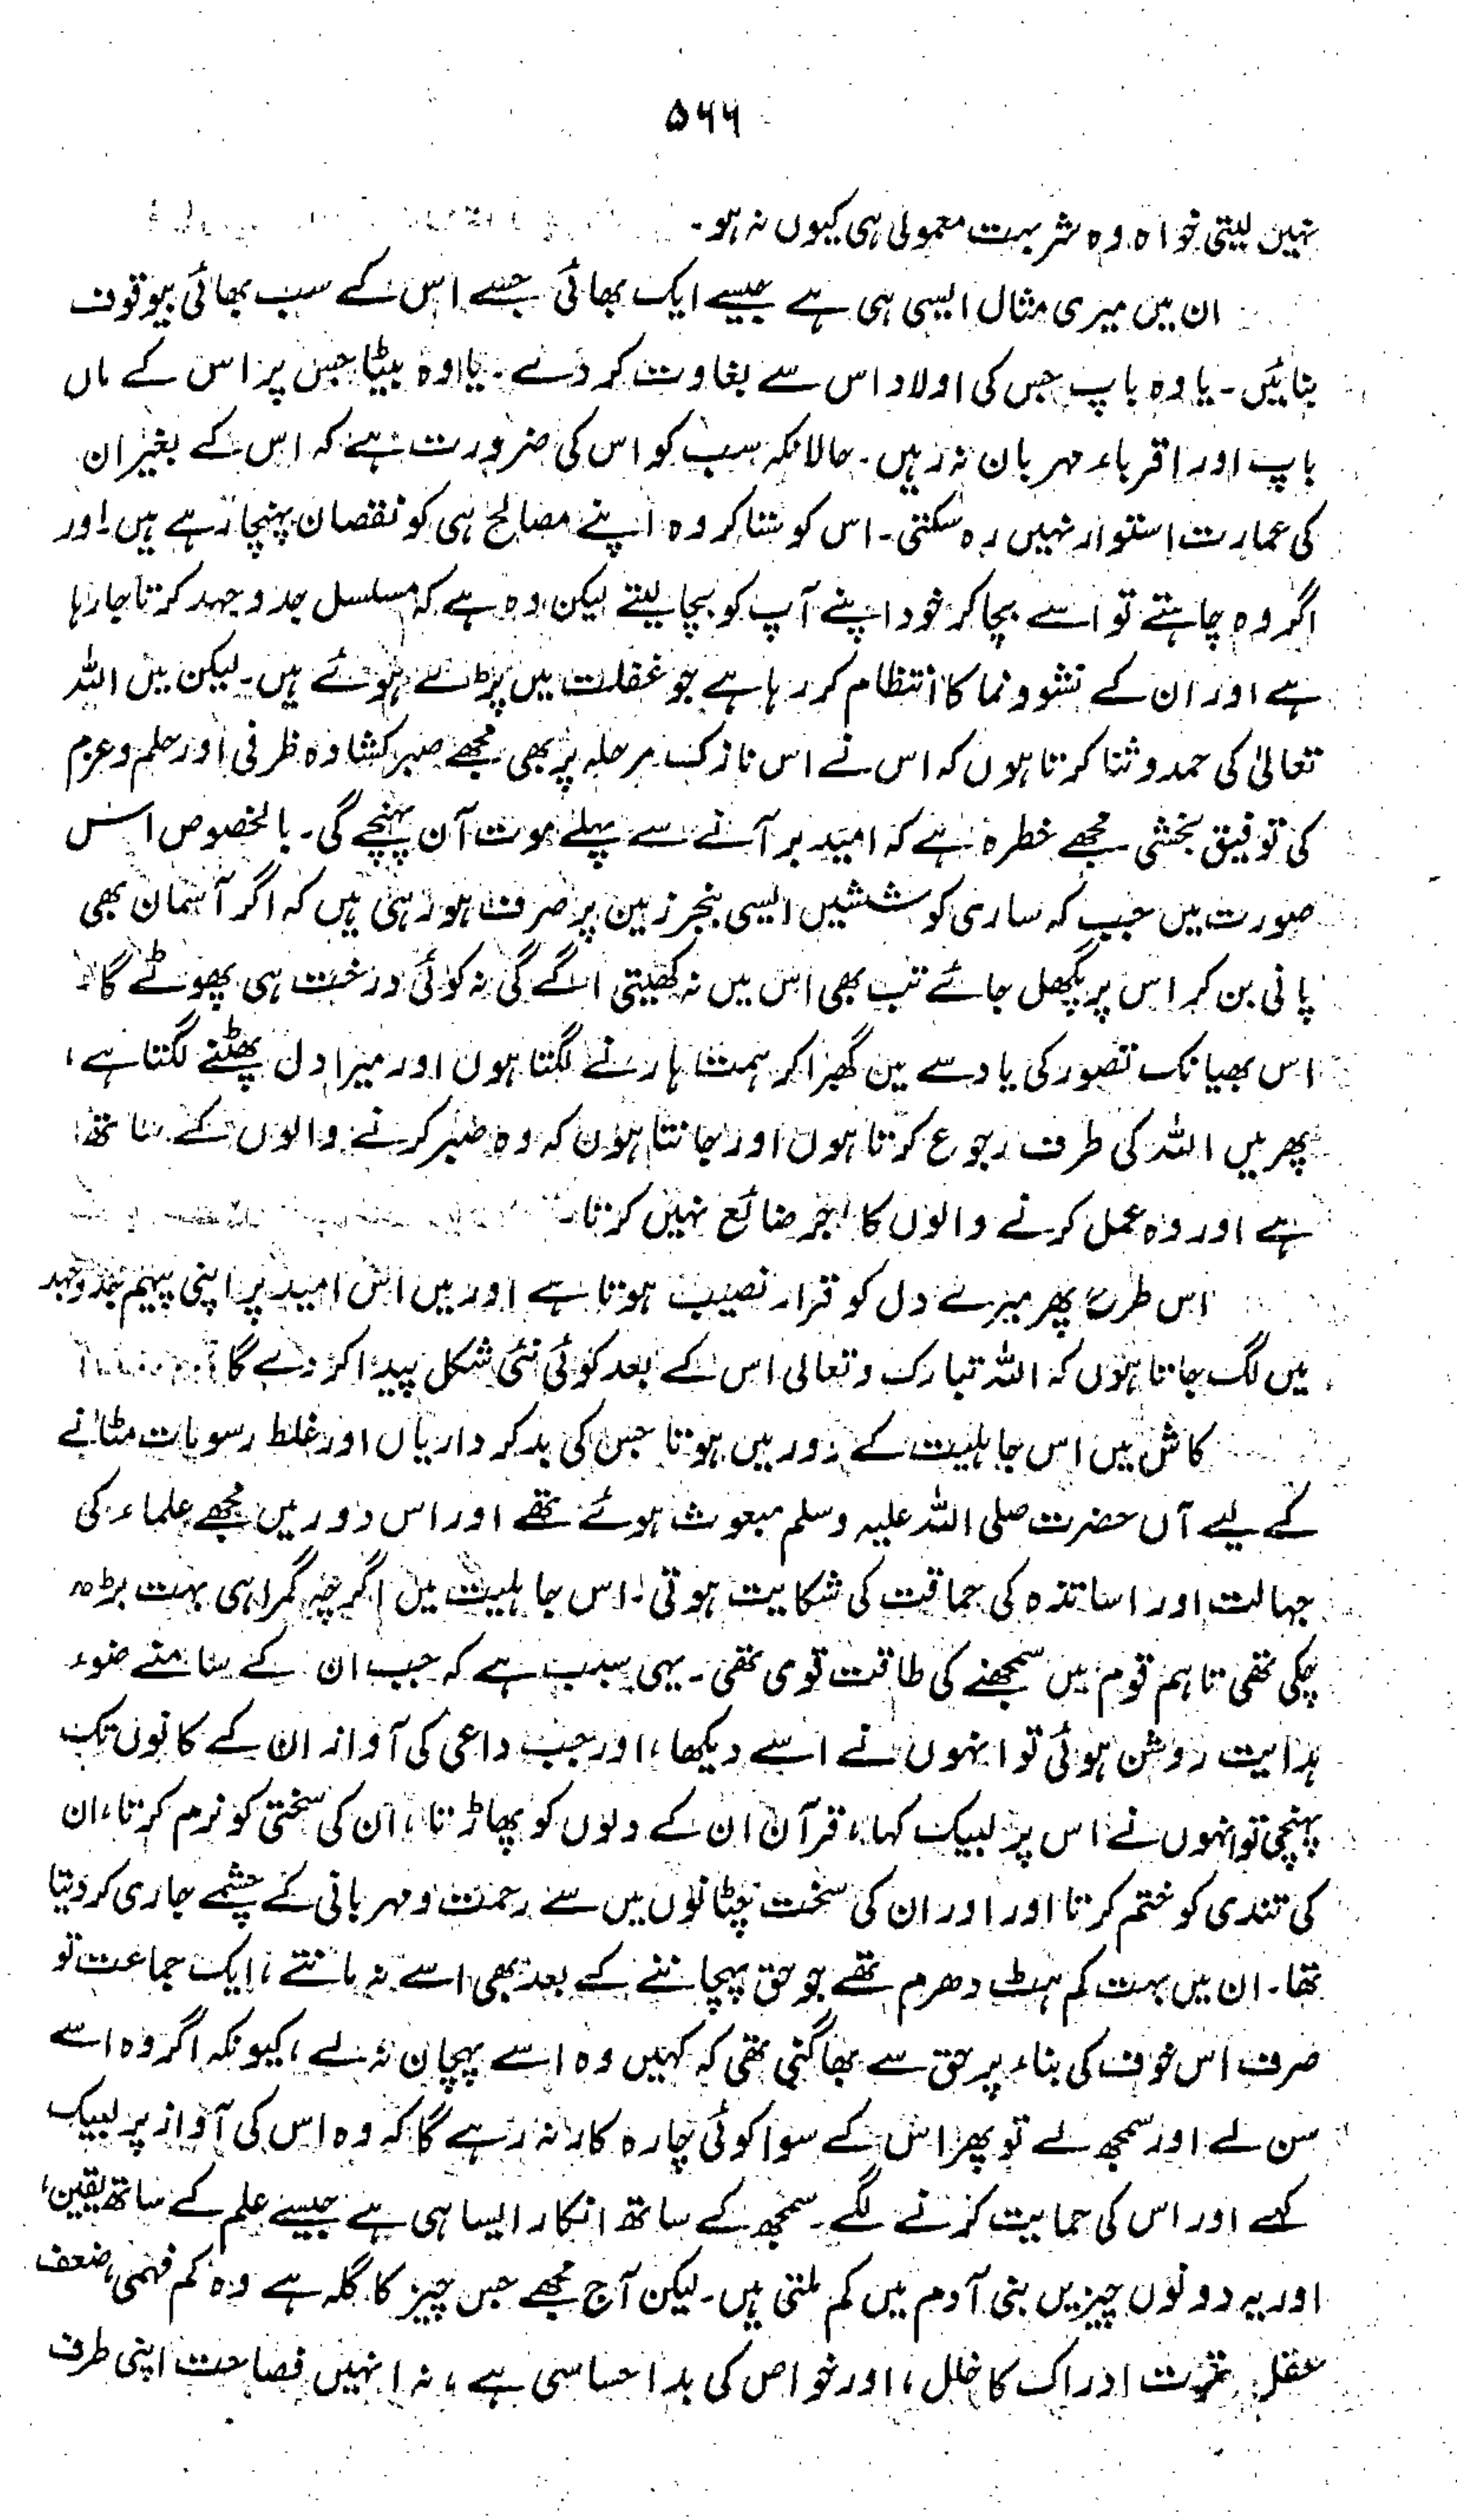 ۵۶۶
نہیں لیتی خواہ وہ شربت معمولی ہی کیوں نہ ہو۔
ان میں میری مثال ایسی ہی ہے جیسے ایک بھائی جسے اس کے سب بھائی بیوقوف
بنائیں۔ یا وہ باپ جس کی اولاد اس سے بغاوت کر دے۔ یا وہ بیٹا جس پر اس کے ماں
باپ اور اقرباء مہربان نہ رہیں۔ حالانکہ سب کو اس کی ضرورت ہے کہ اس کے بغیر ان
کی عمارت استوار نہیں رہ سکتی۔ اس کو ستا کر وہ اپنے مصالح ہی کو نقصان پہنچا رہے ہیں اور
اگر وہ چاہتے تو اسے بچا کر خود اپنے آپ کو بچا لیتے لیکن وہ ہے کہ مسلسل جدوجہد کرتا جا رہا
ہے اور ان کے نشوونما کا انتظام کر رہا ہے جو غفلت میں پڑے ہوئے ہیں۔ لیکن میں اللہ
تعالیٰ کی حمد و ثنا کرتا ہوں کہ اس نے اس نازک مرحلہ پر بھی مجھے صبر کشادہ ظرفی اور حلم و عزم
کی توفیق بخشی مجھے خطرہ ہے کہ امید بر آنے سے پہلے موت آن پہنچے گی۔ بالخصوص اس
صورت میں جب کہ ساری کوششیں ایسی بنجر زمین پر صرف ہو رہی ہیں کہ اگر آسمان بھی
پانی بن کر اس پر پگھل جائے تب بھی اس میں نہ کھیتی اگے گی نہ کوئی درخت ہی پھوٹے گا۔
اس بھیانک تصور کی یاد سے میں گھبرا کر ہمت ہارنے لگتا ہوں اور میرا دل پھٹنے لگتا ہے،
پھر میں اللہ کی طرف رجوع کرتا ہوں اور جانتا ہوں کہ وہ صبر کرنے والوں کے ساتھ
ہے اور وہ عمل کرنے والوں کا اجر ضائع نہیں کرتا۔
اس طرح پھر میرے دل کو قرار نصیب ہوتا ہے اور میں اس امید پر اپنی پیہم جدوجہد
میں لگ جاتا ہوں کہ اللہ تبارک وتعالی اس کے بعد کوئی نئی شکل پیدا کر دے گا۔
کاش میں اس جاہلیت کے دور میں ہوتا جس کی بدکرداریاں اور غلط رسومات مٹانے
کے لیے آں حضرت صلی اللہ علیہ وسلم مبعوث ہوئے تھے اور اس دور میں مجھے علماء کی
جہالت اور اساتذہ کی حماقت کی شکایت ہوتی۔ اس جاہلیت میں اگرچہ گمراہی بہت بڑھ
چکی تھی تاہم قوم میں سمجھنے کی طاقت قوی تھی۔ یہی سبب ہے کہ جب ان کے سامنے ضوء
ہدایت روشن ہوئی تو انہوں نے اسے دیکھا، اور جب داعی کی آواز ان کے کانوں تک
پہنچی تو انہوں نے اس پر لبیک کہا، قرآن ان کے دلوں کو پھاڑتا، ان کی سختی کو نرم کرتا، ان
کی تندی کو ختم کرتا اور اور ان کی سخت چٹانوں میں سے رحمت و مہربانی کے چشمے جاری کر دیتا
تھا۔ ان میں بہت کم ہٹ دھرم تھے جو حق پہچاننے کے بعد بھی اسے نہ مانتے، ایک جماعت تو
صرف اس خوف کی بناء پر حق سے بھاگتی تھی کہ کہیں وہ اسے پہچان نہ لے، کیونکہ اگر وہ اسے
سن لے اور سمجھ لے تو پھر اس کے سوا کوئی چارہ کار نہ رہے گا کہ وہ اس کی آواز پر لبیک
کہے اور اس کی حمایت کرنے لگے۔ سمجھ کے ساتھ انکار ایسا ہی ہے جیسے علم کے ساتھ یقین،
اور یہ دونوں چیزیں بنی آدم میں کم ملتی ہیں۔ لیکن آج مجھے جس چیز کا گلہ ہے وہ کم فہمی، ضعف
عقل قوت ادراک کا خلل، اور خواص کی بد احساسی ہے، نہ انہیں فصاحت اپنی طرف